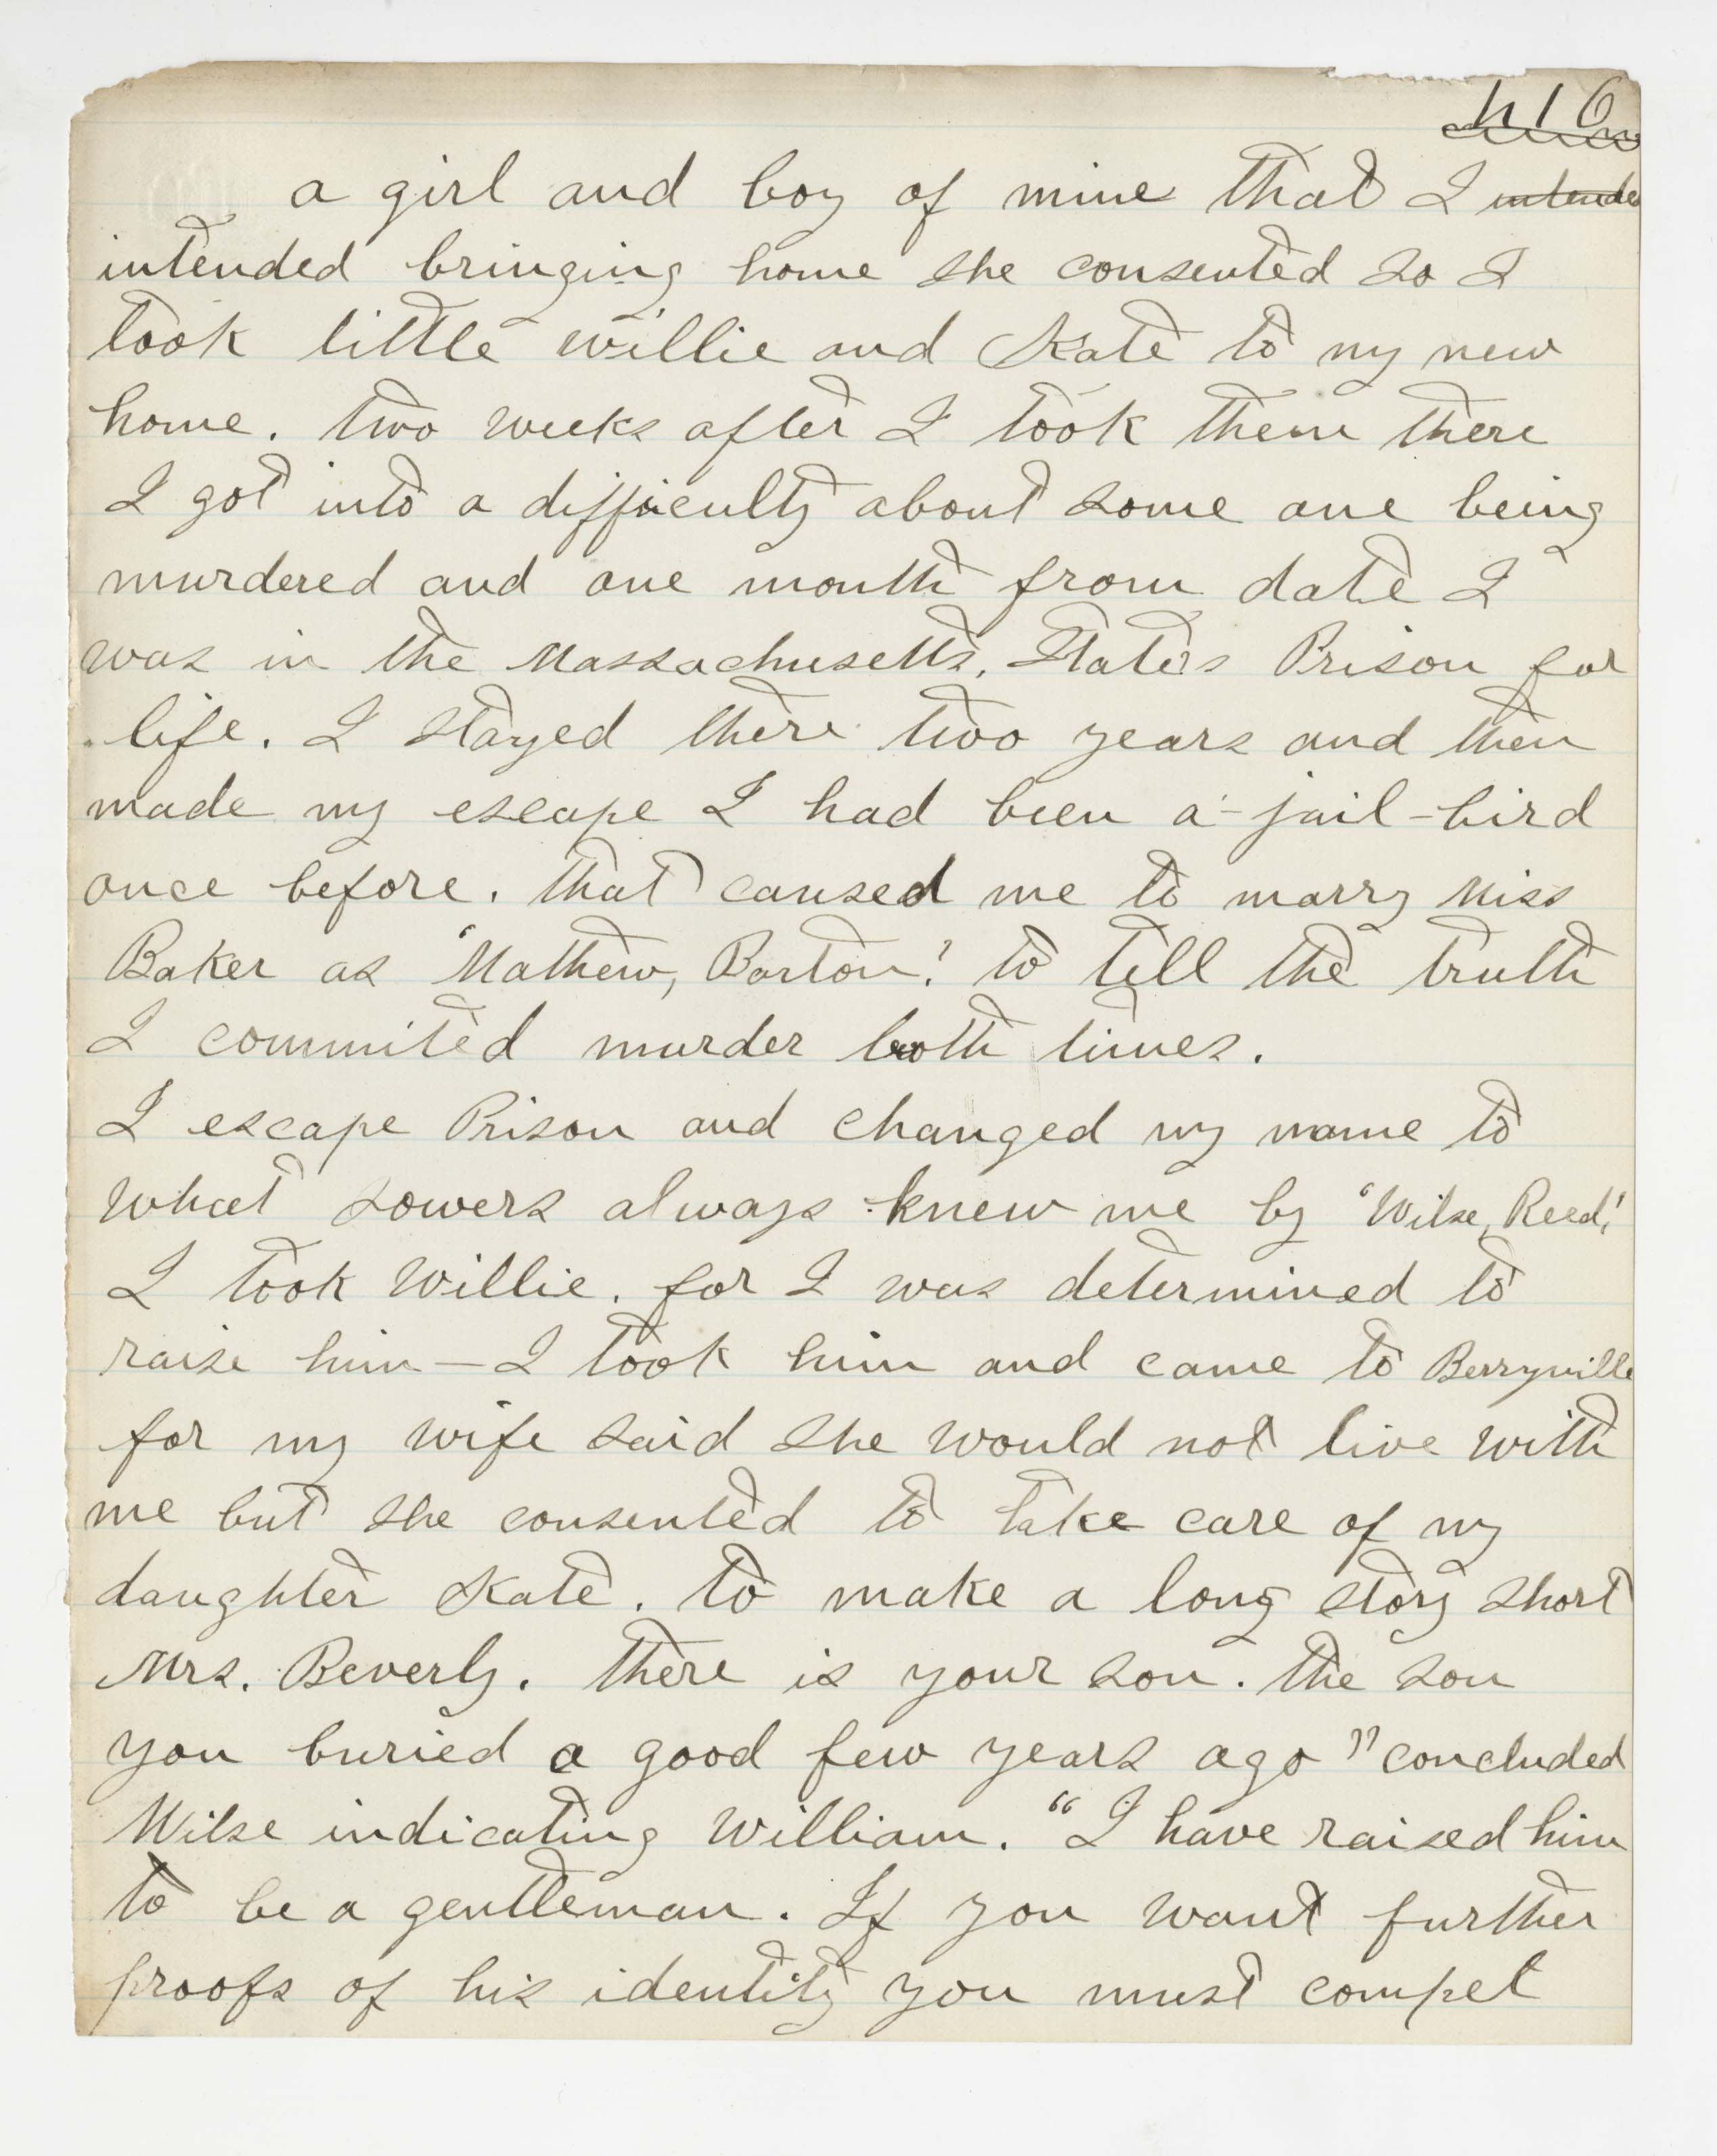 416
a girl and boy of mine that I intende
intended bringing home she consented so I
took little willie and Kate to my new
home. two weeks after I took them there
I got into a difficulty about some one being
murdered and one month from date I
was in the Massachusetts, States Prison for
life. I stayed there two years and then
made my escape I had been a-jail-bird
once before. that caused me to marry Miss
Baker as 'Mathew, Barton.' to tell the truth
I commited murder both times.
I escape Prison and changed my name to
what Sowers always knew me by 'Wilse, Reed.'
I took Willie. for I was determined to
raise him — I took him and came to Berryville
for my wife said she would not live with
me but she consented to take care of my
daughter Kate. to make a long story short
Mrs. Beverly. there is your son. the son
you buried a good few years ago" concluded
Wilse indicating William. "I have raised him
to be a gentleman. If you want further
proofs of his identity you must compel